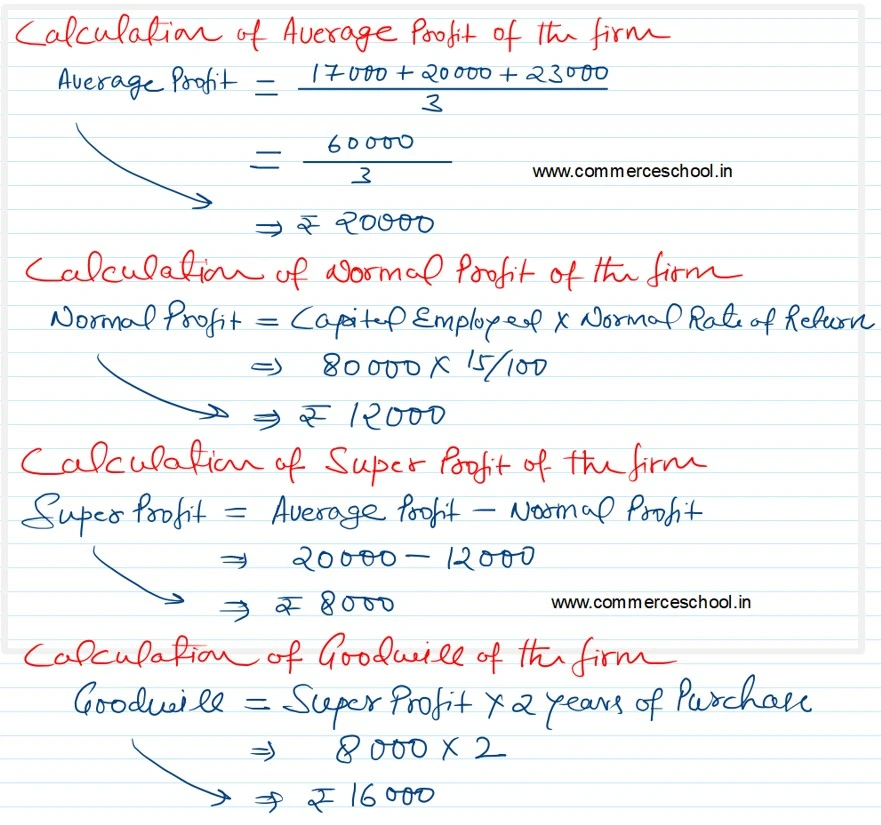 Calculation of Average Profit of the firm
Average Profit = 17000 + 20000 + 23000
3
= 60000
3
www.commerceschool.in
⇒ ₹ 20000
Calculation of Normal Profit of the firm
Normal Profit = Capital Employed × Normal Rate of Return
⇒ 80000 × 15/100
⇒ ₹ 12000
Calculation of Super Profit of the firm
Super Profit = Average Profit – Normal Profit
⇒ 20000 – 12000
⇒ ₹ 8000
www.commerceschool.in
Calculation of Goodwill of the firm
Goodwill = Super Profit × 2 years of Purchase
⇒ 8000 × 2
⇒ ₹ 16000